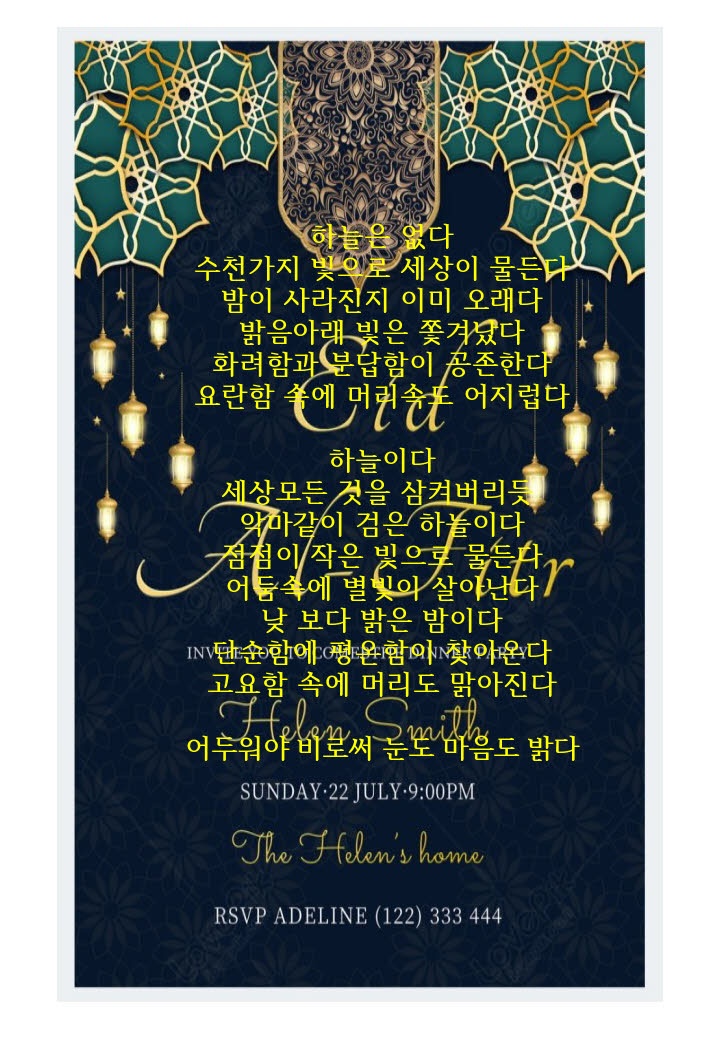 하늘은 없다
수천가지 빛으로 세상이 물든다
밤이 사라진지 이미 오래다
밝음아래 빛은 쫓겨났다
화려함과 분답함이 공존한다
요란함 속에 머리속도 어지럽다
Eid
하늘이다
세상모든 것을 삼켜버리듯
악마같이 검은 하늘이다
점점이 작은 빛으로 물든다
Al-Fitr
어둠속에 별빛이 살아난다
낮 보다 밝은 밤이다
단순함에 평온함이 찾아온다
INVITE YOU TO COME THE DINNER PARTY
고요함 속에 머리도 맑아진다
Helen Smith
어두워야 비로써 눈도 마음도 밝다
SUNDAY·22 JULY·9:00PM
The Helen's home
RSVP ADELINE (122) 333 444